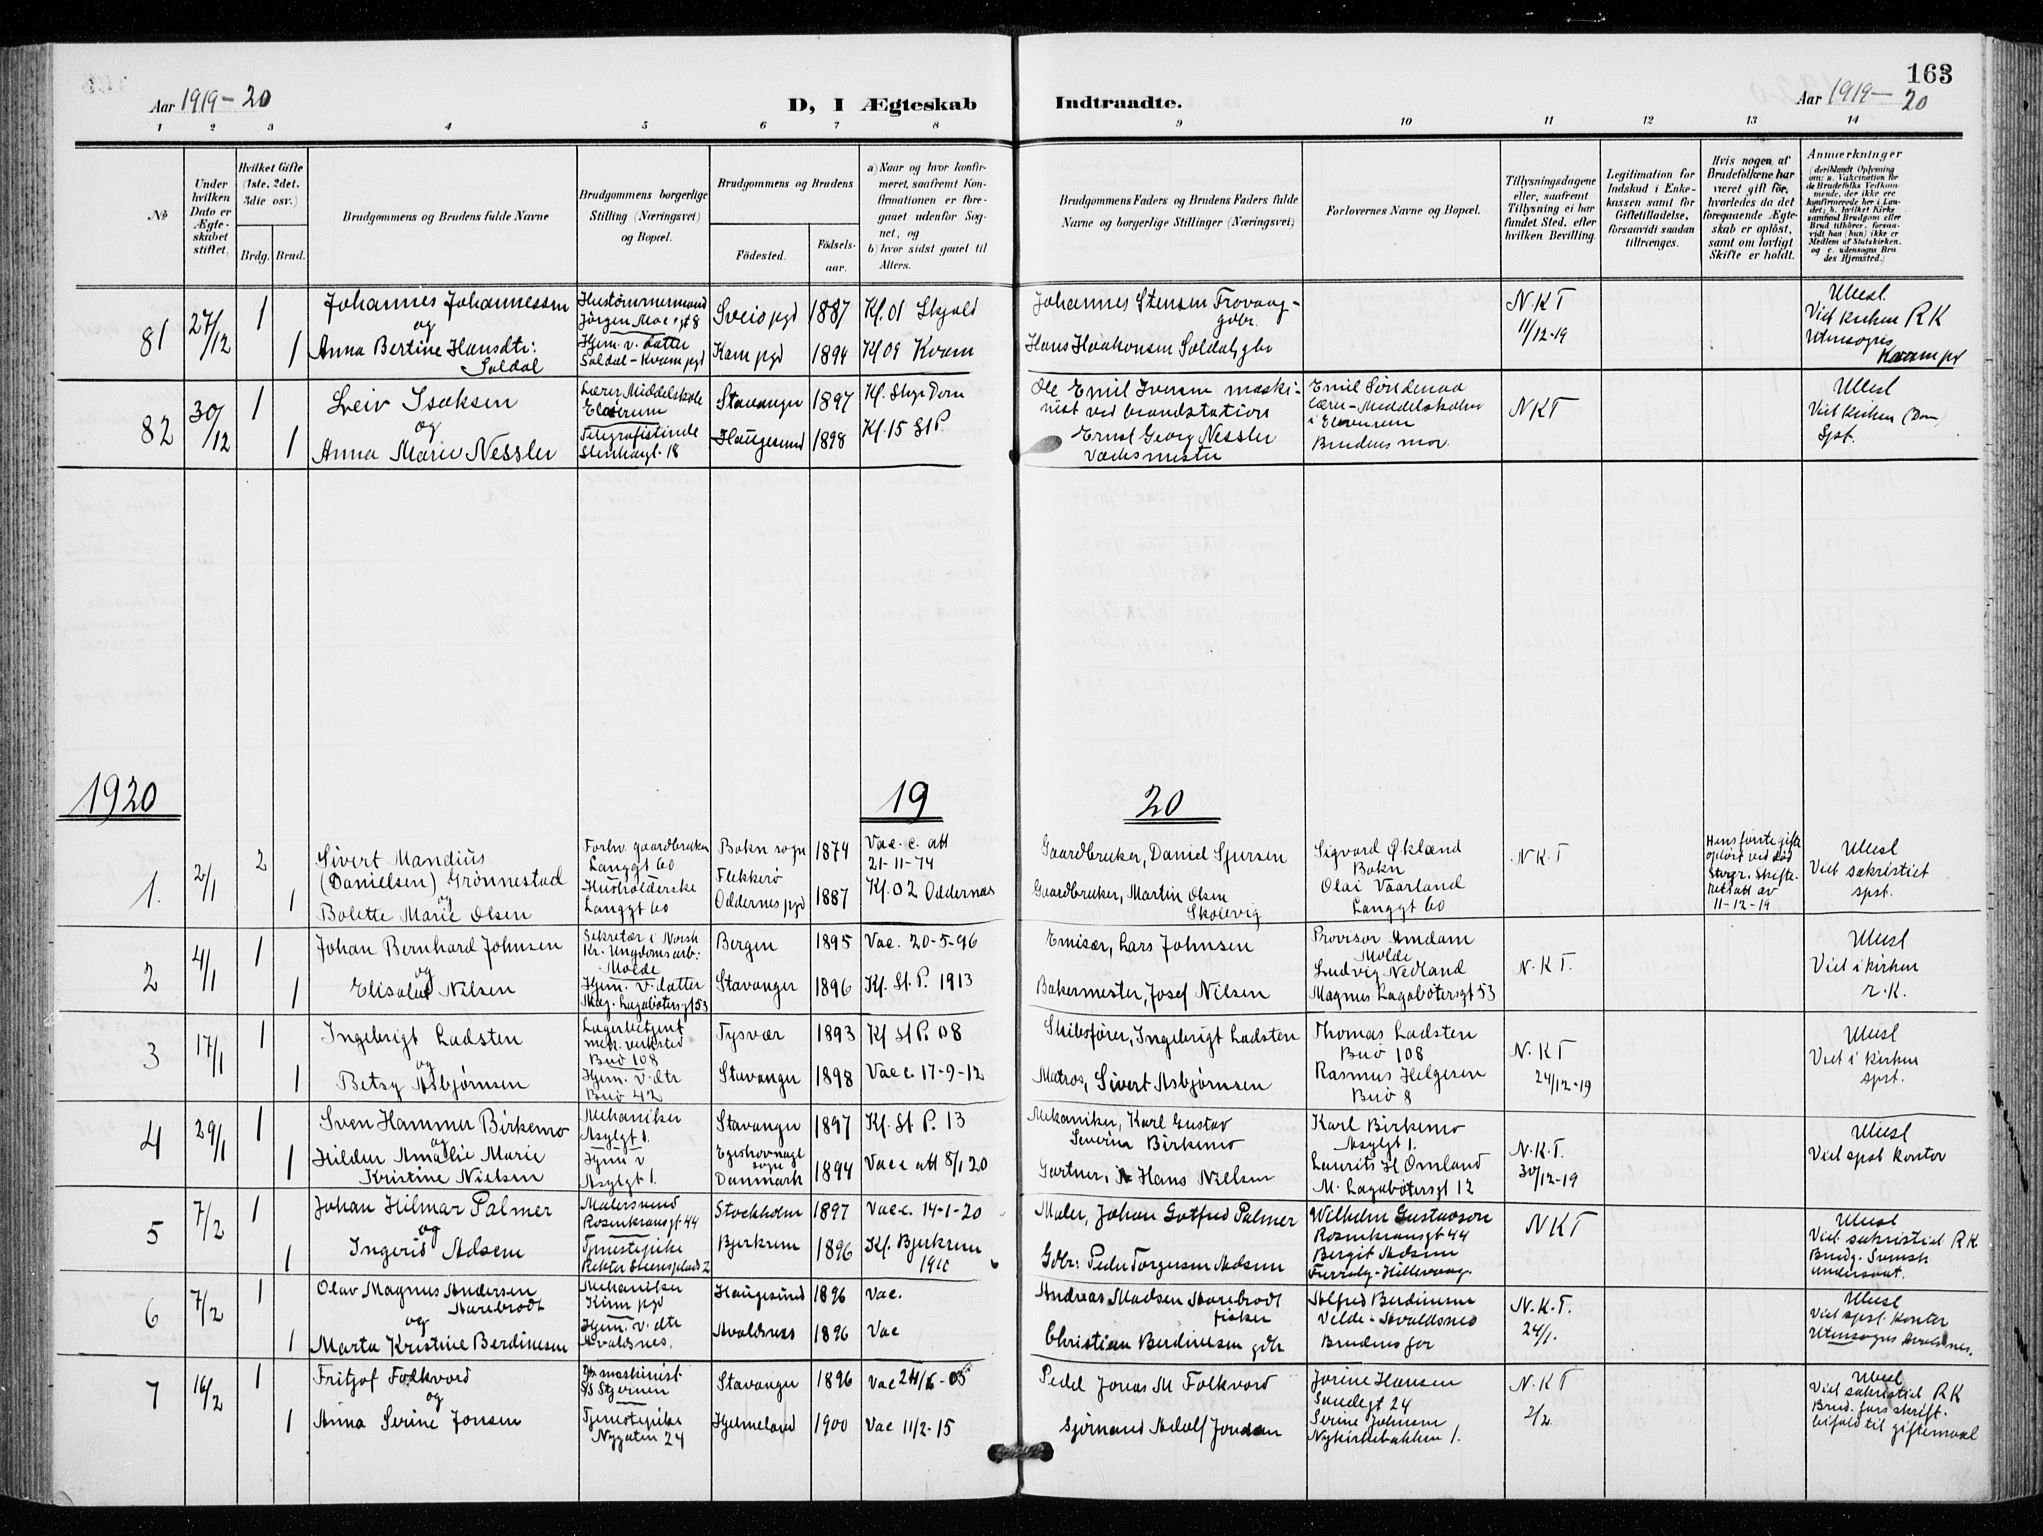 163
Aar 1919-20
D, I Ægteskab
Indtraadte.
Aar 1919-20
1 2 3 4 5 6 7 8 9 10 11 12 13 14
No
Under hvilken Dato er Ægteskabet stiftet.
Hvilket Gifte (1ste, 2det, 3die osv.)
Brdg. Brud.
Brudgommens og Brudens fulde Navne
Brudgommens borgerlige Stilling (Næringsvei) og Bopæl.
Brudgommens og Brudens
Fødested.
Fødselsaar.
a) Naar og hvor konfirmeret, saafremt Konfirmationen er foregaaet udenfor Sognet, og
b) hvor sidst gaaet til Alters.
Brudgommens Faders og Brudens Faders fulde Navne og borgerlige Stillinger (Næringsvei)
Forlovernes Navne og Bopæl.
Tillysningsdagene eller, saafremt Tillysning ei har fundet Sted, efter hvilken Bevilling.
Legitimation for Indskud i Enkekassen samt for Giftetilladelse, forsaavidt saadan tiltrænges.
Hvis nogen af Brudefolkene har været gift før, hvorledes da det foregaaende Ægteskab er opløst, samt om lovligt Skifte er holdt.
Anmærkninger
(deriblandt Oplysning om: a. Vakcination for de Brudefolks Vedkommende, der ikke ere konfirmerede her i Landet; b. hvilket Kirkesamfund Brudgom eller Brud tilhører, forsaavidt han (hun) ikke er Medlem af Statskirken, og c. udensogns Brudes Hjemsted.)
81 27/12 1
Johannes Johannessen
og
1 Anna Bertine Hansdtr:
Soldal
Hustømmermand
Jörgen Moesgt 8
Hjem. v. datter
Soldal - Kvam pgd
Sveio pgd 1887 Kf. 01 Skjold
Kam pgd 1894 Kf 09 Kvam
Johannes Stensen Trovaag-
gdbr.
Hans Haakonsen Soldal gbr
N.K.T
11/12-19
Ulvesl.
Viet kirken RK
Utensogns
Kvam pgd
82 30/12 1
Leiv Isaksen
og
1 Anna Marie Nessler
Lærer Middelskole
Elverum
Telegrafistinde
Stenhagt. 18
Stavanger 1897 Kf. Stvgr Dom
Haugesund 1898 Kf. 15 St P.
Ole Emil Iversen maski-
nist ved brandstation
Ernst Georg Nessler
Værksmester
Emil Söndenaa
lærer-Middelskolen
i Elverum
Brudens mor.
NKT
Viet kirken (Dom)
Spst.
1920
19
20
1. 2/1 2
Sivert Mandius
(Danielsen) Grönnestad
og
1 Bolette Marie Olsen
Forhv. gaardbruker
Langgt 60
Husholderske
Langgt 60
Bokn sogn 1874
Flekkerö
Oddernes pgd 1887
Vac. c. att
21-11-74
Kf. 02 Oddernes
Gaardbruker, Daniel Sjursen
Gaardbruker, Martin Olsen
Skolevig
Sigvard Økland
Bokn
Olai Vaarland
Langgt 60
N.K.T
Hans første gifte
opløst ved død
Stvgr. Skifte-
ret att av
11-12-19
Viet sakristiet
spst.
2 4/1 1
Johan Bernhard Johnsen
og
1 Nilsen
Sekretær i Norsk
Kr. Ungdomsarb:
Molde
Hjem. v. datter
Mag. Lagabötersgt 53
Bergen 1895 Vac. 20-5-96
Stavanger 1896 Kf. St. P. 1913
Emisær, Lars Johnsen
Bakermester, Josef Nilsen
Provisor Amdam
Molde
Ludvig Nedland
Magnus Lagabötersgt 53
N.K.T.
Viet i kirken
r.K.
3 17/1 1
Ingebrigt Ladsten
og
1 Betsy Asbjörnsen
Lagerbetjent
mek. verksted
Buö 108
Hjem. v. dtr
Buö 42
Tysvær 1893 Kf St P. 08
Stavanger 1898 Vac c. 17-9-12
Skibsförer, Ingebrigt Ladsten
Matros, Sivert Asbjörnsen
Thomas Ladsten
Buö 108
Rasmus Helgesen
Buö 8
N.KT
24/12-19
Viet i kirken
spst.
4 29/1 1
Sven Hammer Birkemo
og
1 Hilder Amalie Marie
Kristine Nielsen
Mekaniker
Asylgt 1.
Hjem v
Asylgt 1.
Stavanger 1897 Kf. St P. 13
sogn
Danmark 1894 Vac c att 8/1 20
Mekaniker, Karl Gustav
Severin Birkemo
Gartner, Hans Nielsen
Karl Birkemo
Asylgt 1.
Laurits H Omland
M. Lagabötersgt 12
N.K.T.
30/12-19
Viet spst kontor
5 7/2 1
Johan Hilmar Palmer
og
1 Ingerid Adsem
Malersvend
Rosenkransgt 44
Tjenestepike
Rektor Steensplads 2
Stockholm 1897 Vac c. 14-1-20
Bjerkrem 1896 Kf. Bjerkrem
Maler, Johan Gotfred Palmer
Gdbr: Peder Torgersen Adsem
Wilhelm Gustavson
Rosenkransgt 44
Bergit Adsem
NKT
Viet sakristiet RK
Brudg. Svensk
undersaat.
6 7/2 1
Olav Magnus Andersen
Aarebrodt
og
1 Marta Kristine Berdinesen
Mekaniker
Kinn pgd
Hjem. v. dtr
Avaldsnes.
Haugesund 1896 Vac.
Avaldsnes 1896 Vac
Andreas Madsen Aarebrodt
fisker
Christian Berdinesen gdbr
Alfred Berdinesen
Velde - Avaldsnes
Brudens far
N.K.T.
24/1.
Viet spst. kontor
Utensogns Avaldsnes.
7 16/2 1
Fritjof Folkvord
og
1 Anna Serine Jonsen
maskinist
S/S Stjernen
Tjenestepike
Nygaten 24
Stavanger 1896
Hjelmeland 1900 Vac 11/2-15
Pedel Jonas M Folkvord
Sjömand Adolf
Jorine Hansen
Sandegt 24
Serine Johnsen
Nykirkebakken 1.
N.KT
2/2
Viet sakristiet RK
Brud. fars skrift.
bifald til giftemaal